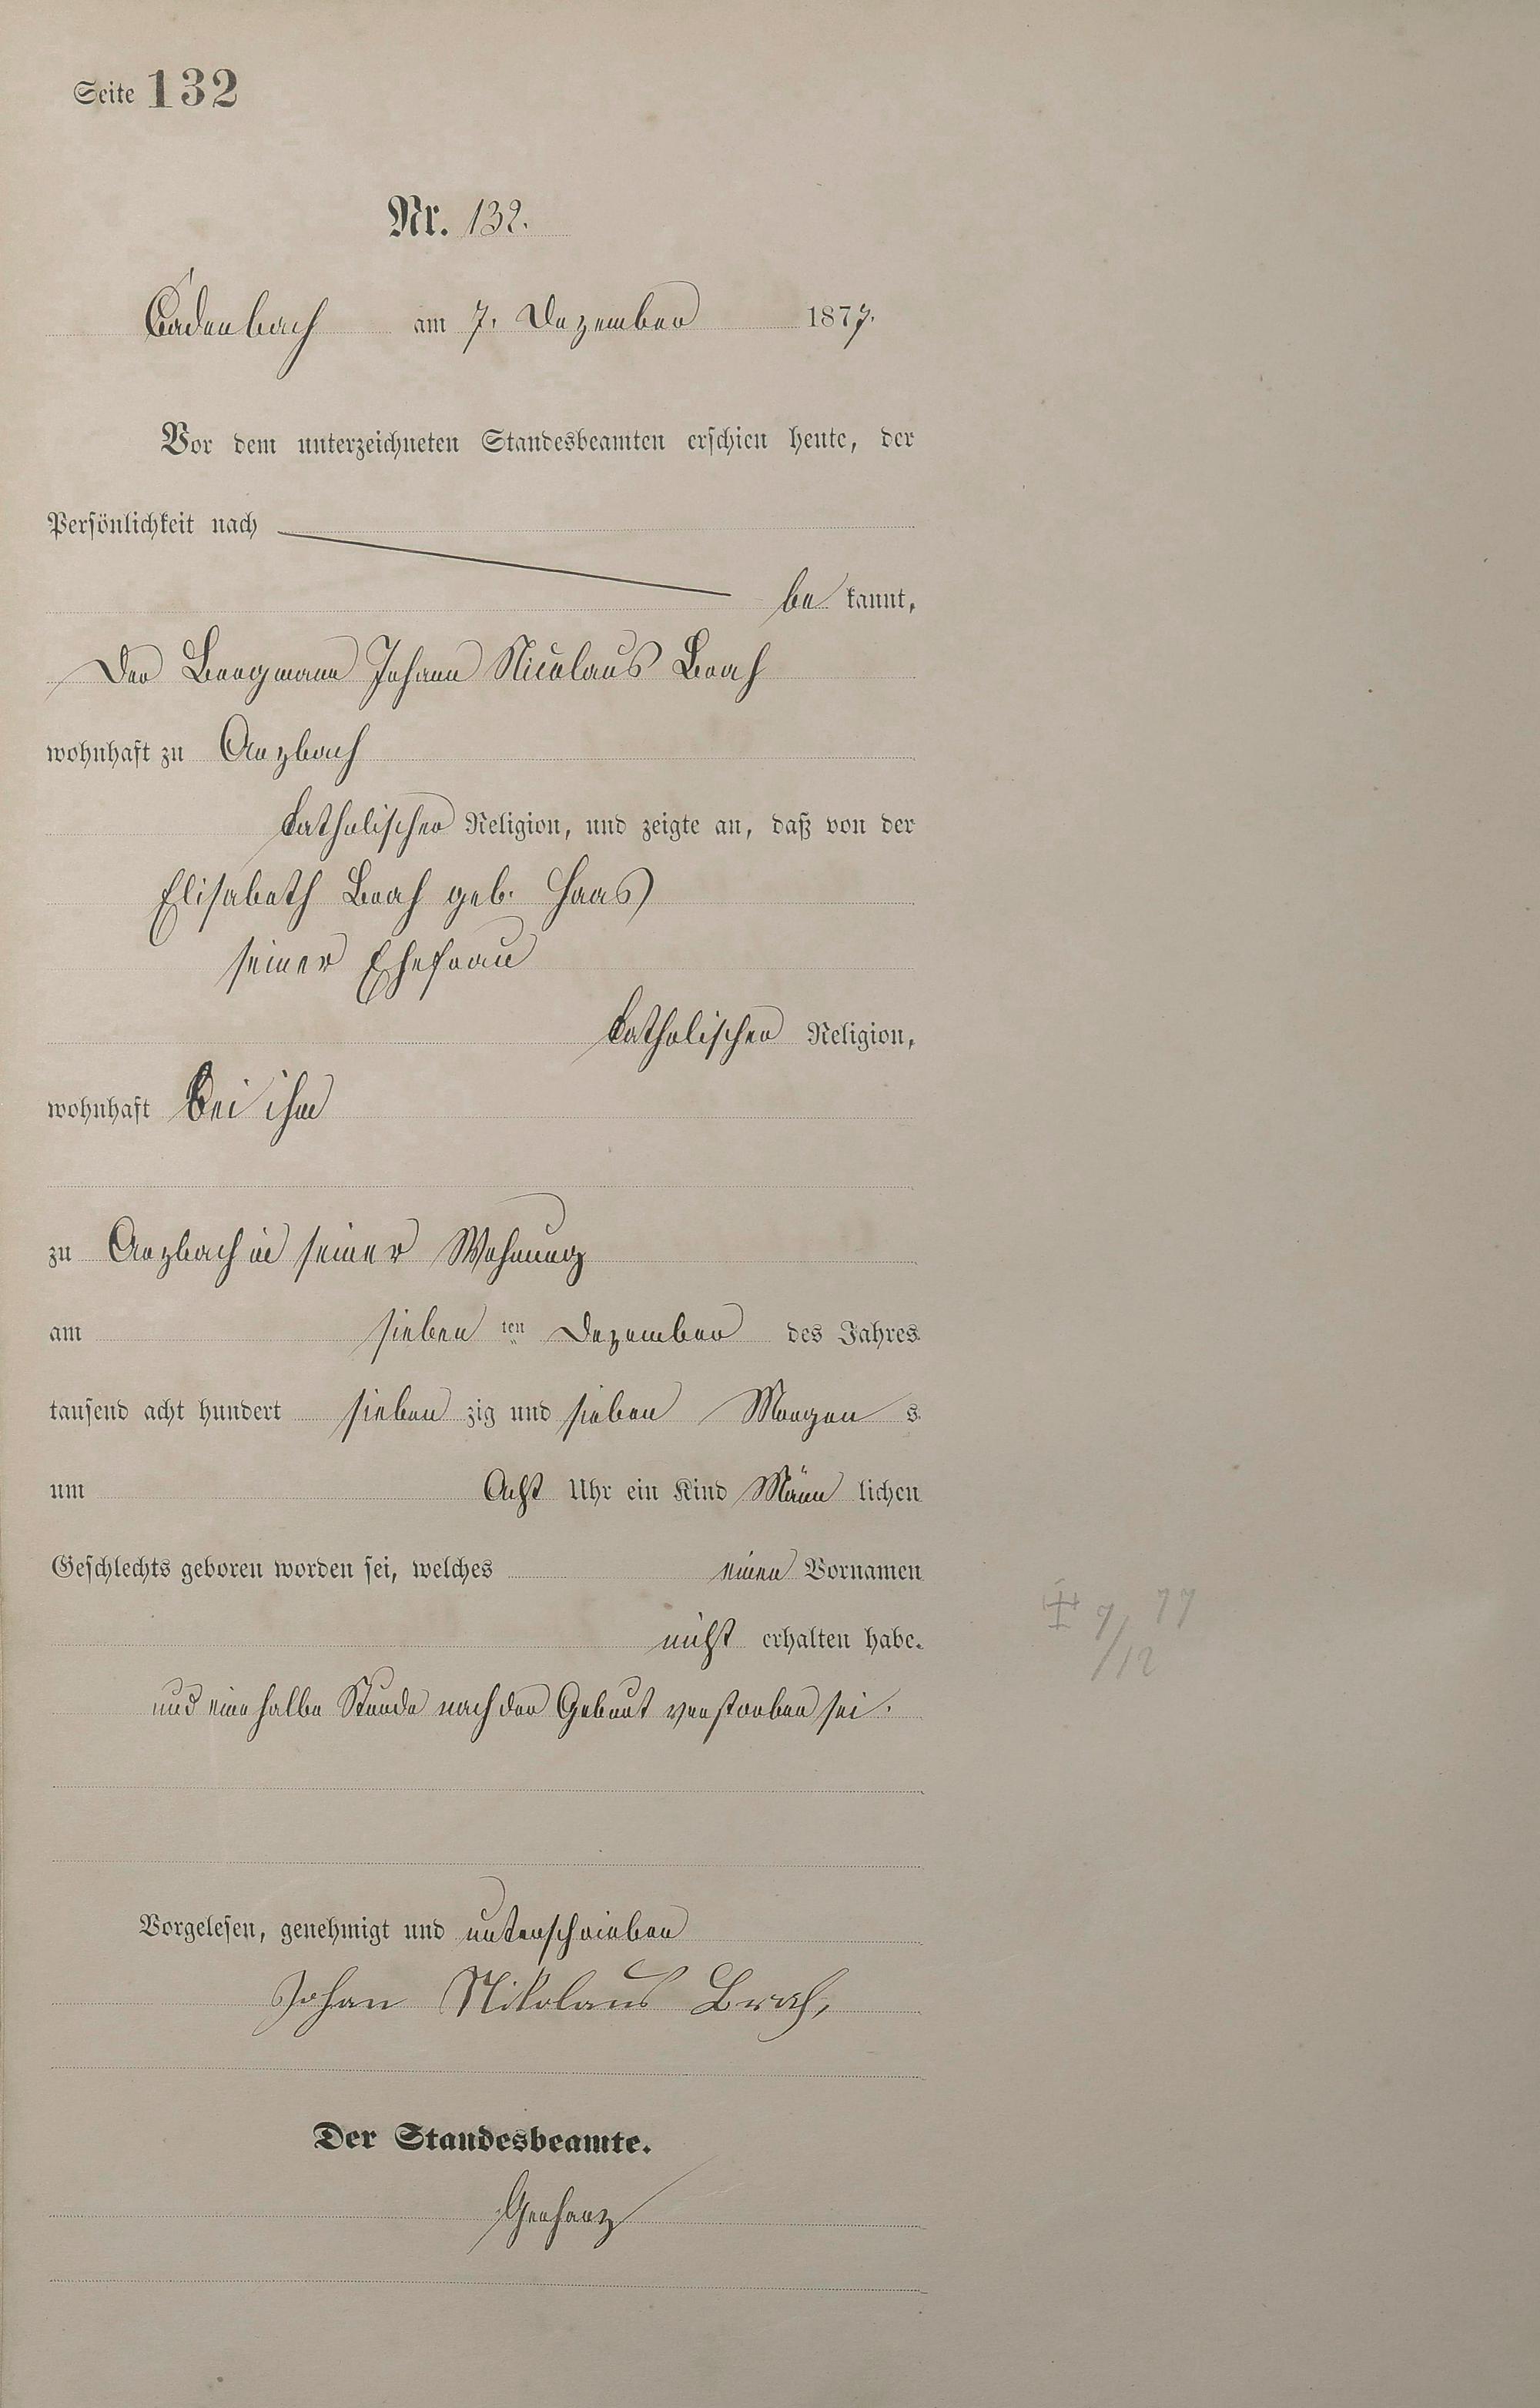 Seite 132
Nr. 132.
Cadenbach am 7. Dezember 1877.
Vor dem unterzeichneten Standesbeamten erschien heute, der
Persönlichkeit nach
be kannt,
Der Bergmann Johann Nicolaus Brach
wohnhaft zu Arzbach
katholischer Religion, und zeigte an, daß von der
Elisabeth Brach geb. Haas
seiner Ehefrau
katholischer Religion,
wohnhaft bei ihm
zu Arzbach in seiner Wohnung
am sieben ten Dezember des Jahres
tausend acht hundert sieben zig und sieben Morgen s
um Acht Uhr ein Kind Männ lichen
Geschlechts geboren worden sei, welches einen Vornamen
nicht erhalten habe.
und eine halbe Stunde nach der Geburt verstorben sei.
Vorgelesen, genehmigt und unterschrieben
Johan Nikolaus Brach,
Der Standesbeamte.
Gerharz
† 7/12 77